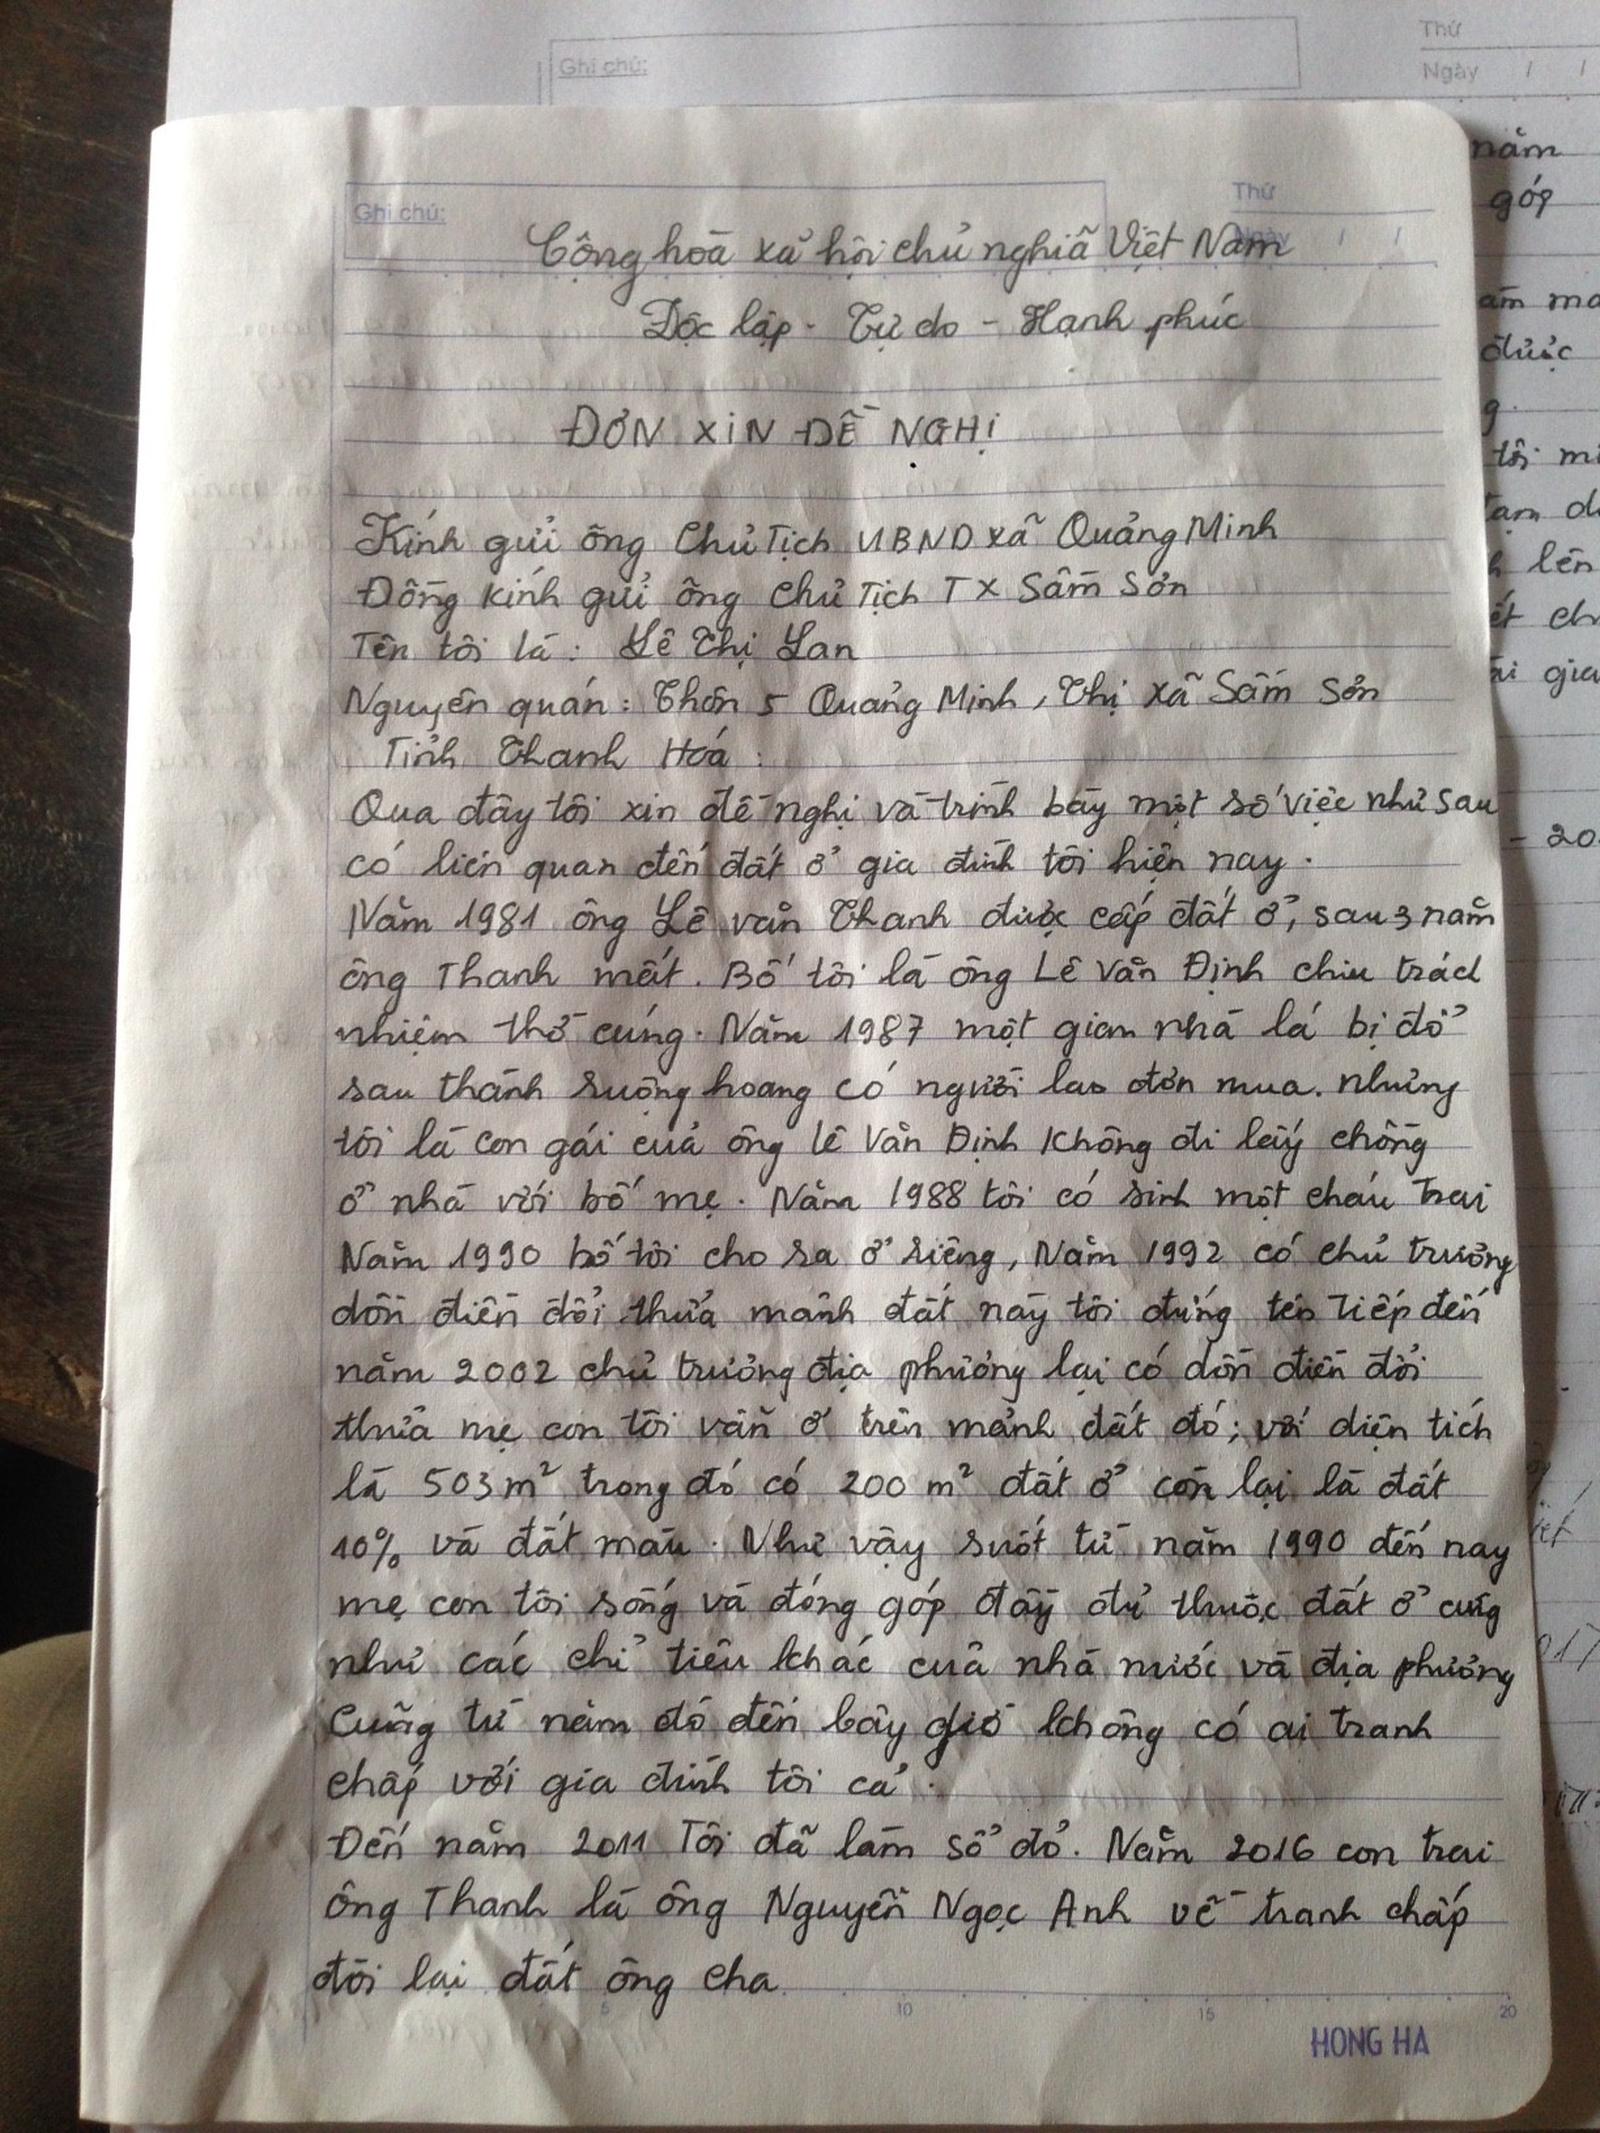 Ghi chú:
Thứ
Ngày / /
Ghi chú:
Thứ
Ngày / /
Cộng hoà xả hội chủ nghiã Việt Nam
Độc lập - Tự do - Hạnh phúc
ĐƠN XIN ĐỀ NGHỊ
Kính gửi ông Chủ Tịch UBND xã Quảng Minh
Đồng kính gửi ông Chủ Tịch TX Sầm Sơn
Tên tôi là: Lê Thị Lan
Nguyên quán: Thôn 5 Quảng Minh, Thị xã Sầm Sơn
Tỉnh Thanh Hoá:
Qua đây tôi xin đề nghị và trình bày một số việc như sau
có liên quan đến đất ở gia đình tôi hiện nay.
Năm 1981 ông Lê văn Thanh được cấp đất ở, sau 3 năm
ông Thanh mất. Bố tôi là ông Lê Văn Định chiu trách
nhiệm thờ cúng. Năm 1987 một gian nhà lá bị đổ
sau thành ruộng hoang có người lao đơn mua. nhưng
tôi là con gái cuả ông lê Văn Định Không đi lấy chồng
ở nhà với bố mẹ. Năm 1988 tôi có sinh một cháu trai
Năm 1990 bố tôi cho ra ở riêng, Năm 1992 có chủ trương
dồn điền đổi thửa mảnh đất này tôi đứng tên Tiếp đến
năm 2002 chủ trương địa phương lại có dồn điền đổi
thửa mẹ con tôi vẫn ở trên mảnh đất đó; với diện tích
là 503 m² trong đó có 200 m² đất ở còn lại là đất
10% và đất màu. Như vậy suốt từ năm 1990 đến nay
mẹ con tôi sống và đóng góp đầy đủ thuộc đất ở cũng
như các chỉ tiêu khác cuả nhà nước và địa phương
Cũng từ năm đó đến bây giờ không có ai tranh
chấp với gia đình tôi cả.
Đến năm 2011 Tôi đã làm sổ đỏ. Năm 2016 con trai
ông Thanh là ông Nguyễn Ngọc Anh về tranh chấp
đòi lại đất ông cha
5 10 15 20
HONG HA
năm
góp
được
g.
tôi
lên
gia
- 20